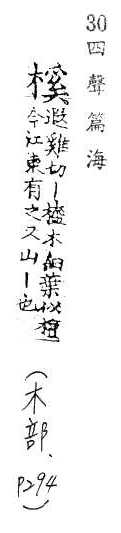 30四聲篇海
榽遐雞切丨橀木細葉似檀
今江東有之又山丨也
（木部、
P294）